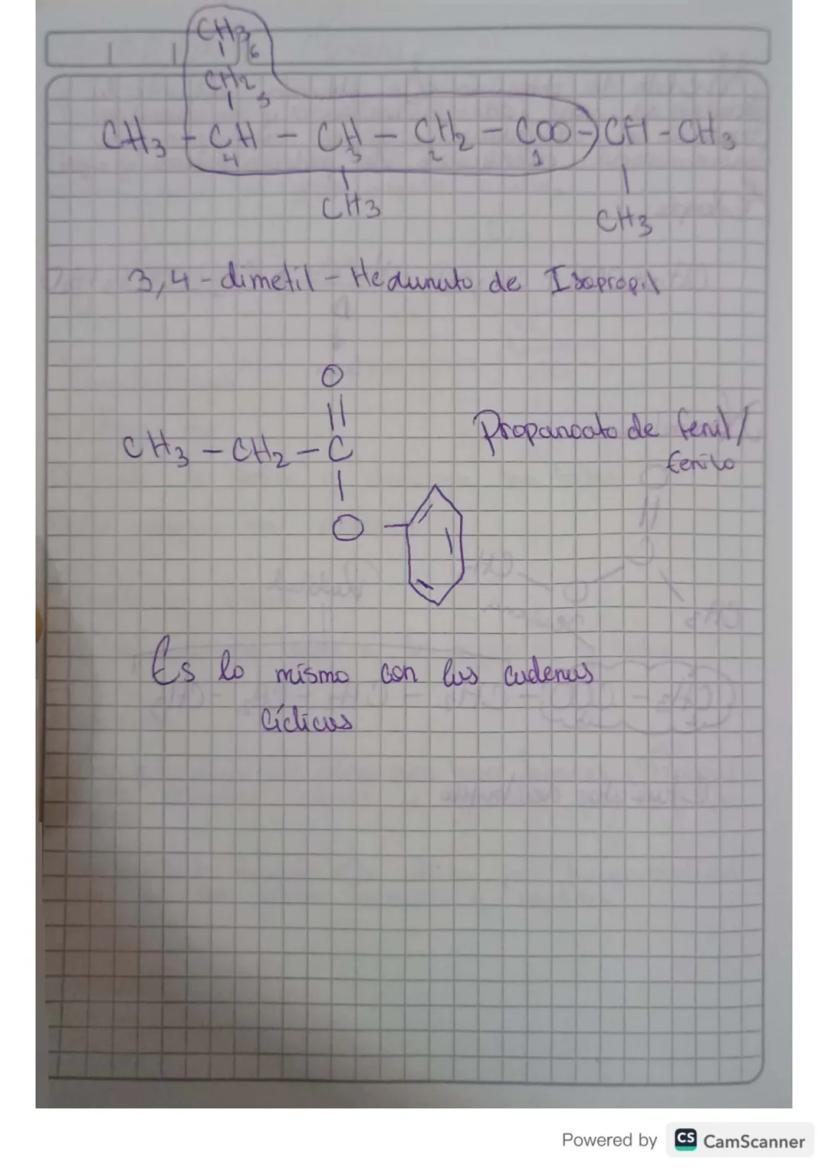 CH3
6
CH2
5
CH3 - CH - CH - CH2 - COO - CH - CH3
4 3 2 1
CH3 CH3
3,4-dimetil-Hexanato de Isopropil
O
CH3 - CH2 - C
O
Propanoato de fenil/
fenilo
Es lo mismo con las cadenas
cíclicas
Powered by CS CamScanner